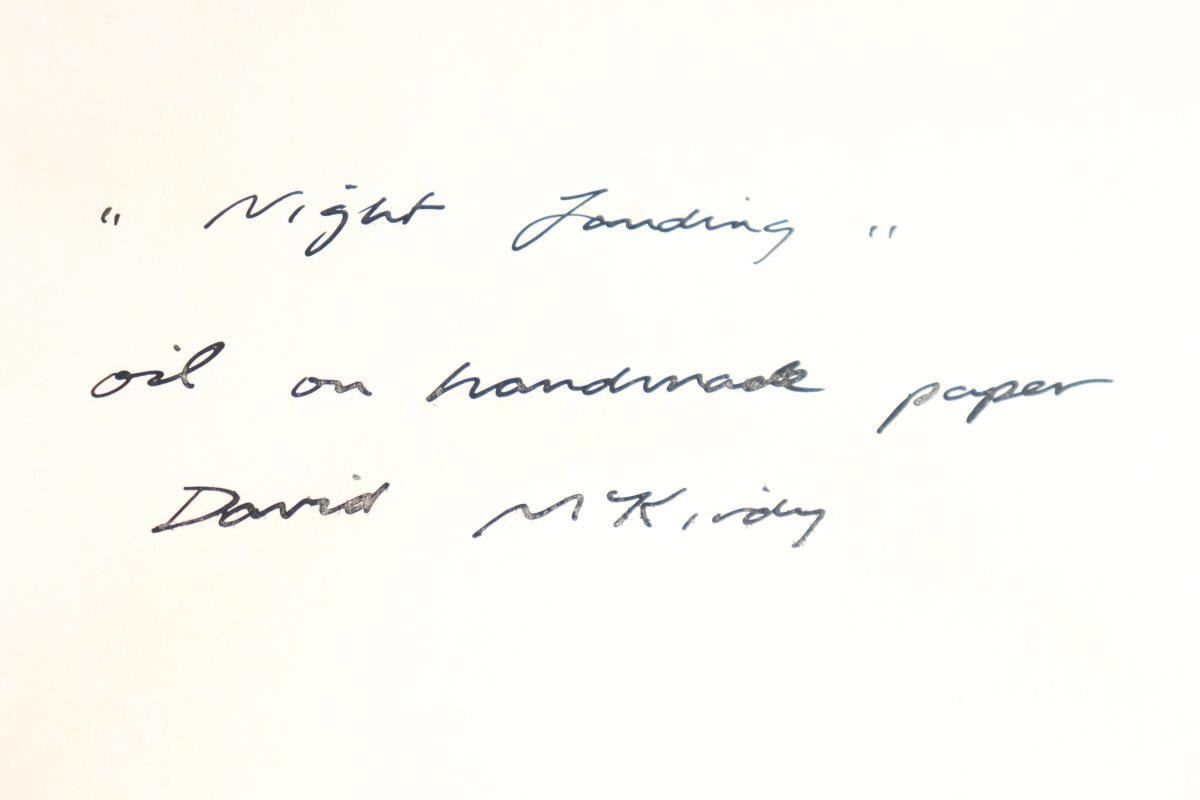 "Night Landing"
oil on handmade paper
David McKirdy